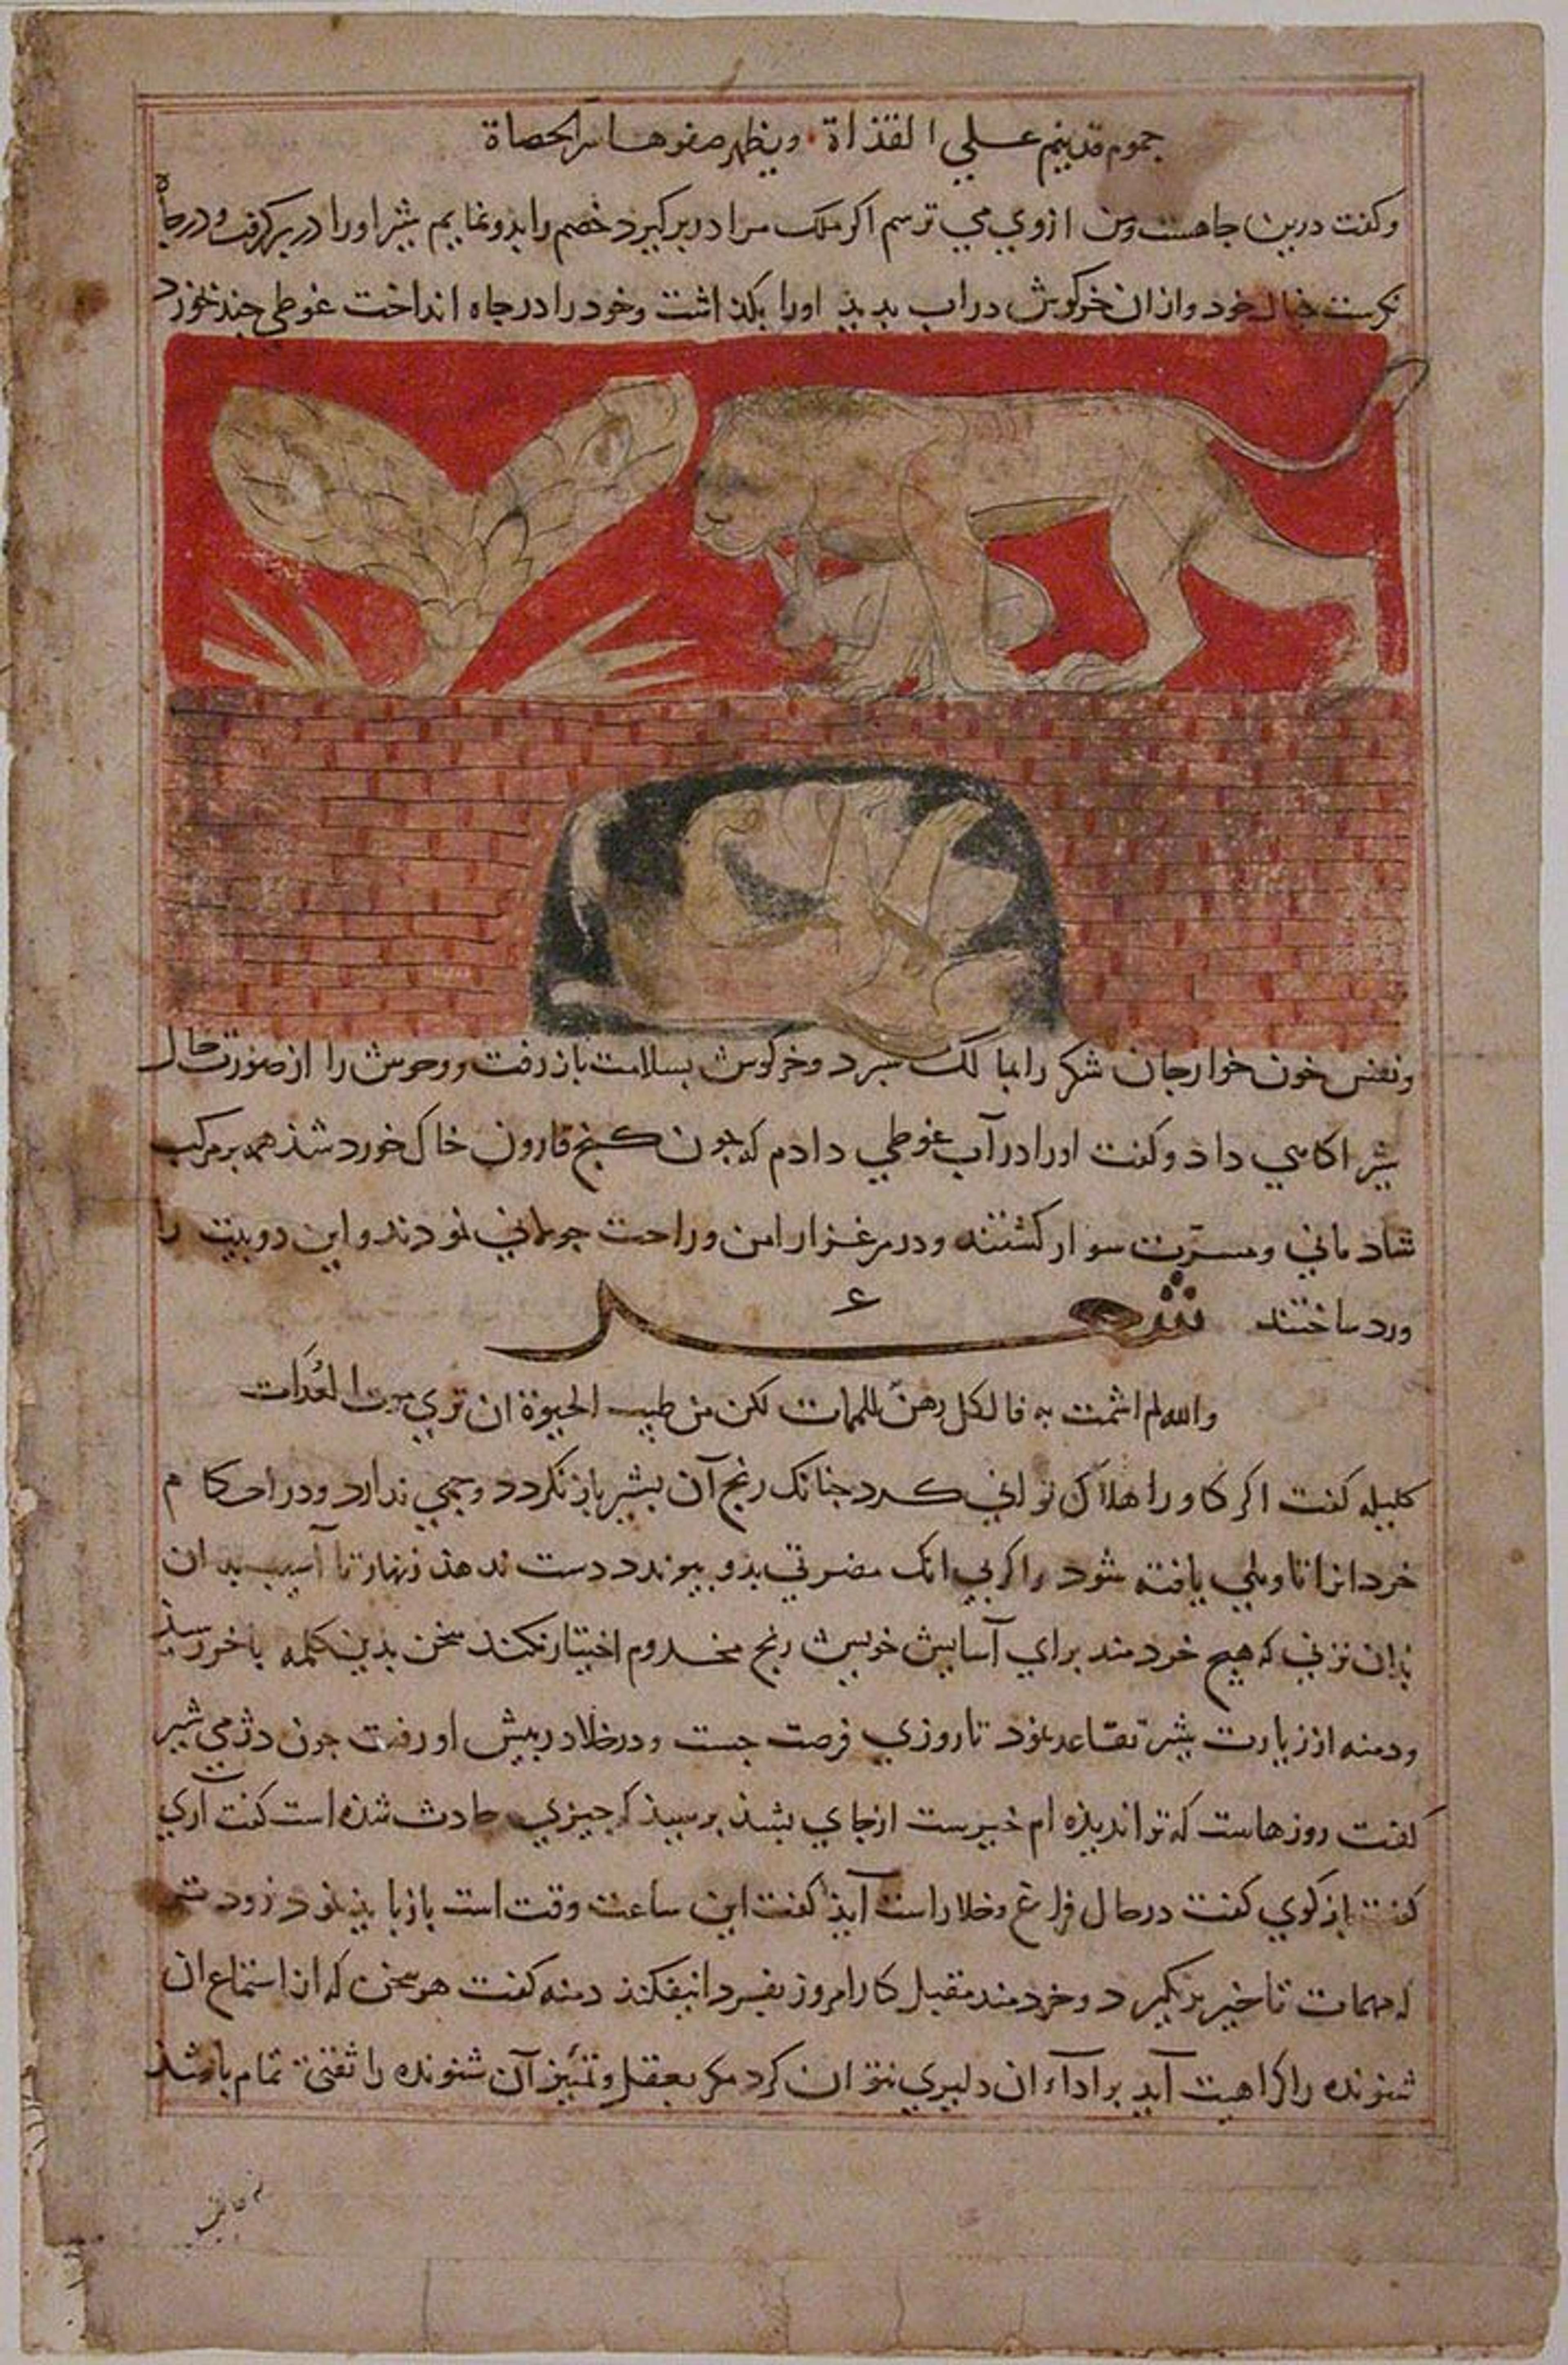 جموم قد ينم علي القذاة وينظهر صفوها سر الحصاة
وكفت درين جاهست ومن ازوي مي ترسم اكر ملك مرا در بر كيرد خصم را بدو نمايم شير او را در بر كرفت و در جاه
نكرست خيال خود و ازان خركوش در اب بديذ اورا بكذاشت وخود را در جاه انداخت غوطي جند خورد
ونفس خون خوار جان شكر را بما لك سبرد وخركوش بسلامت باز رفت و وحوش را از صورت حال
شير اكاهي داد وكفت اورا در آب غوطي دادم كه جون كنج قارون خاك خورد شذ همه بر مركب
شادماني ومسرّت سوار كشتند ودر مرغزار امن وراحت جولاني نمودند واين دو بيت را
ورد ساختند شعر
والله لم اشمت به فالكل رهنٌ للممات لكن من طيب الحيوة ان تري موت العُدَات
كليله كفت اكر كاو را هلاك تواني كرد جنانك رنج آن بشير باز نكردد وجهي ندارد ودر احكام
خرد انرا تاويلي يافته شود واكر بي انك مضرتي بدو بيوندد دست ندهذ زنهار تا آسيب بدان
نزني كه هيج خردمند براي آسايش خويش رنج مخدوم اختيار نكند سخن بدين كلمه باخر رسيذ
ودمنه از زيارت شير تقاعد نمود تا روزي فرصت جست ودر خلا در بيش او رفت جون دژمي شير
كفت روزهاست كه ترا نديذه ام خيرست ازجاي بشذ برسيذ كه جيزي حادث شذه است كفت آري
كفت باز كوي كفت در حال فراغ وخلا راست آيذ كفت اين ساعت وقت است باز بايذ نمود زودتر
كه مهمات تاخير برنكيرد وخردمند مقبل كار امروز بفردا نيفكند دمنه كفت هر سخن كه از استماع ان
شنونده را كراهيت آيد بر اداء ان دليري نتوان كرد مكر بعقل وتمييز آن شنونده را ثقتي تمام باشذ